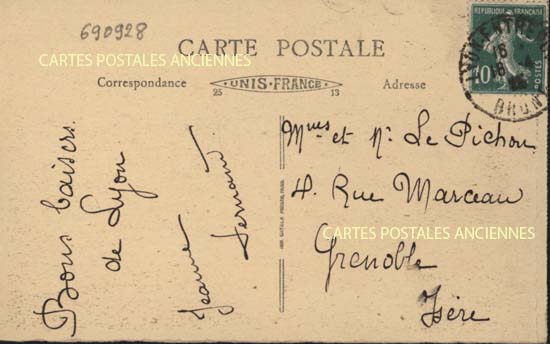 690928
CARTES POSTALES ANCIENNES
CARTE POSTALE
Correspondance
UNIS-FRANCE
25 13
Adresse
REPUBLIQUE FRANÇAISE
10
POSTES
16
Bons baisers.
de Lyon
Jeanne
Fernand
Mmes et Mr Le Pichon
4. Rue Marceau
CARTES POSTALES ANCIENNES
Grenoble
Isère